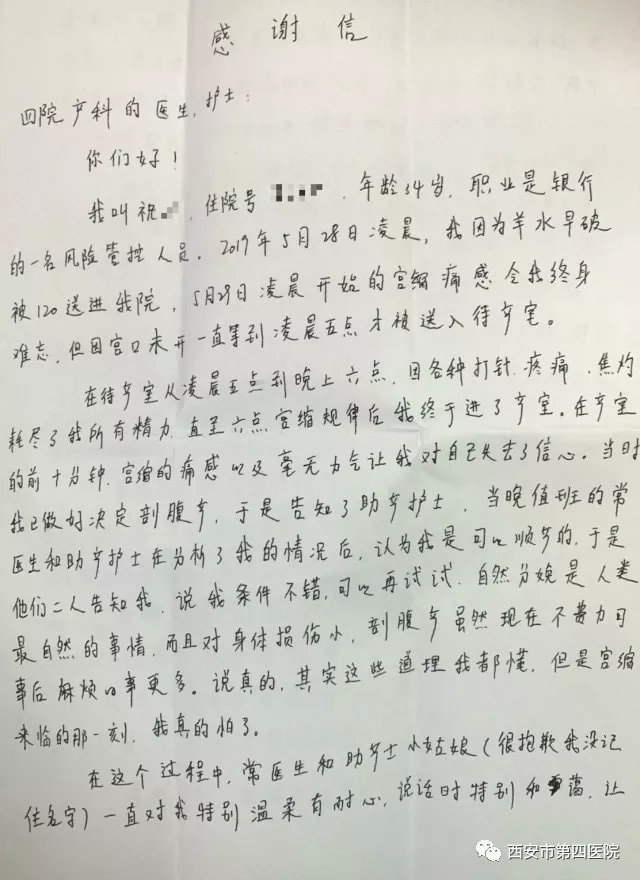 感谢信
四院产科的医生,护士:
你们好!
我叫祝 ,住院号 ,年龄34岁,职业是银行
的一名风险管控人员。2019年5月28日凌晨,我因为羊水早破
被120送进我院,5月29日凌晨开始的宫缩痛感令我终身
难忘,但因宫口未开一直等到凌晨五点才被送入待产室。
在待产室从凌晨五点到晚上六点,因各种打针、疼痛、焦灼
耗尽了我所有精力,直至六点宫缩规律后我终于进了产室。在产室
的前十分钟,宫缩的痛感以及毫无力气让我对自己失去了信心。当时
我已做好决定剖腹产,于是告知了助产护士,当晚值班的常
医生和助产护士在分析了我的情况后,认为我是可以顺产的,于是
他们二人告知我,说我条件不错,可以再试试,自然分娩是人类
最自然的事情,而且对身体损伤小,剖腹产虽然现在不费力可
事后麻烦的事更多。说真的,其实这些道理我都懂,但是宫缩
来临的那一刻,我真的怕了。
在这个过程中,常医生和助产士小姑娘(很抱歉我没记
住名字)一直对我特别温柔有耐心,说话时特别和蔼,让
西安市第四医院